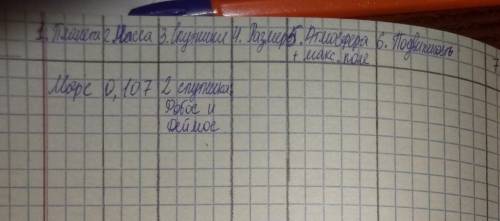 1. Планета 2. Масса 3. Спутники 4. Размер 5. Атмосфера 6. Подвижность 7
+ макс. поле
Марс 0,107 2 спутника,
Фобос и
Деймос